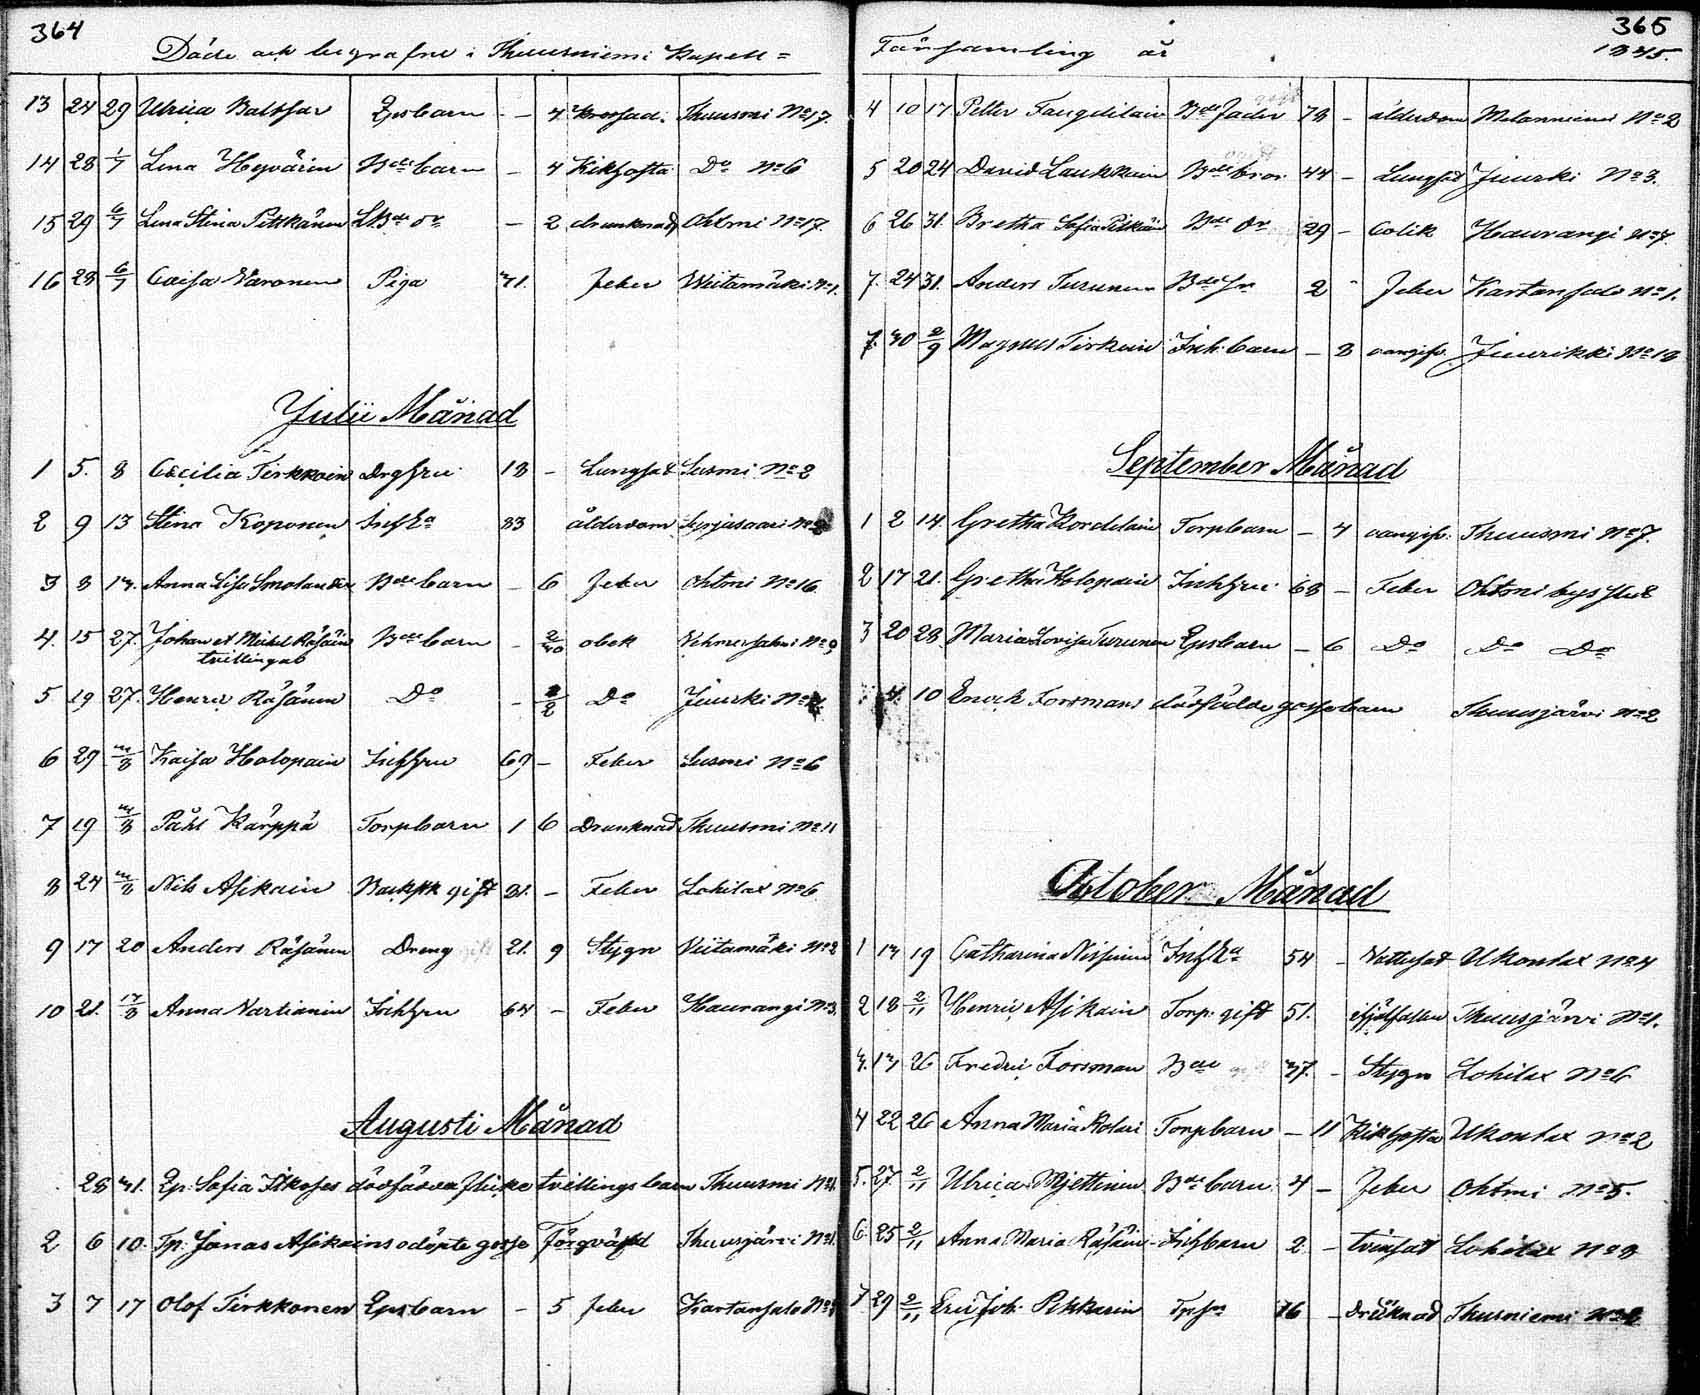 364
Döde och begrafne i Thuusniemi Kapell =
13 24 29 Ulrica Balthsar Epsbarn - - 4 Thuusmi No 17.
14 28 1/7 Lena Hyvärin Bde barn - 4 Kikhosta Do No 6
15 29 6/7 Lena Stina Pitkänen - 2 drunknad Ohtmi No 17.
16 28 6/7 Caisa Varonen Piga 71. feber Viitamäki No 1.
Julii Månad
1 5. 8 Cecilia Tirkkoin Drghru 18 - Lungsot Susmi No 2
2 9 13 Stina Koponen Inhka 83 ålderdom Syrjasaari No
3 8 13. Anna Lisa Smolander Bde barn - 6 feber Ohtmi No 16
4. 15 27. Johan et Mickel Räsäin Bde barn - 2/30 obek Vehmersalmi No 9
tvillingab
5 19 27. Henric Räsänen Do - 1/2 Do Juurki No
6 29 3/8 Kaisa Holopain Inhhru 69 - Feber Susmi No 6
7 19 3/8 Påhl Kärppä Torpbarn 1 6 Drunknad Thuusmi No 11
8 24 3/8 Nils Asikain gift 31. - Feber Lohilax No 6
9 17 20 Anders Räsänen Dreng 21. 9 Stygn Viitamäki No 2
10 21. 17/8 Anna Vartianin Inhhru 64 - Feber Haurangi No 3.
Augusti Månad
28 31. Ep. Sofia dödfödda flicke tvillingsbarn Thuusmi No
2 6 10. Tp. Jonas Asikains odöpte gosse Förqväfd Thuusjärvi No
3 7 17 Olof Tirkkonen Epsbarn - 5 feber Kartansalo No
365
Församling år 1845.
4 10 17 Petter Bde fader 78 - ålderdom Melanniemi No 2
5 20 24 David Laukkain Bde bror 44 - Lungsot Juurki No 3.
6 26 31. Bretha Sofia Pitkäin Bde dr 29 - Colik Haurangi No 7.
7. 24 31. Anders Turunen Bde sn 2 - feber Kartansalo No 1.
7. 30 2/9 Magnus Tirkoin Inh. barn - 3 oangifv. Juurikki No 18
September Månad
1 2 14. Gretha Kordelain Torpbarn - 4 oangifv. Thuusmi No 7.
2 17 21. Gretha Holopain Inhhru 68 - Feber Ohtmi
3 20 28. Maria Lovisa Turunen Epsbarn - 6 Do Do Do
4. 10 Enoch Forsmans dödfödde gossebarn Thuusjärvi No 2
October Månad
1 13 19 Catharina Nissinen Inhka 54 - Vattusot Ukonlax No 4
2 18 2/11 Henric Asikain Torp. gift 51. ihjälfallen Thuusjärvi No 1.
3. 13 26 Fredric Forsman Bde 37. - Stygn Lohilax No 6
4 22 26 Anna Maria Rolari Torpbarn - 11 Kikhosta Ukonlax No 2
5. 27 2/11 Ulrica Miettinen Bde barn 4 - feber Ohtmi No 5.
6. 25 2/11 Anna Maria Räsäin Inhbarn 2 - tvinsot Lohilax No 8
7 29 2/11 Eric Joh. Pekkarin Tpsn 16 - Thusniemi No